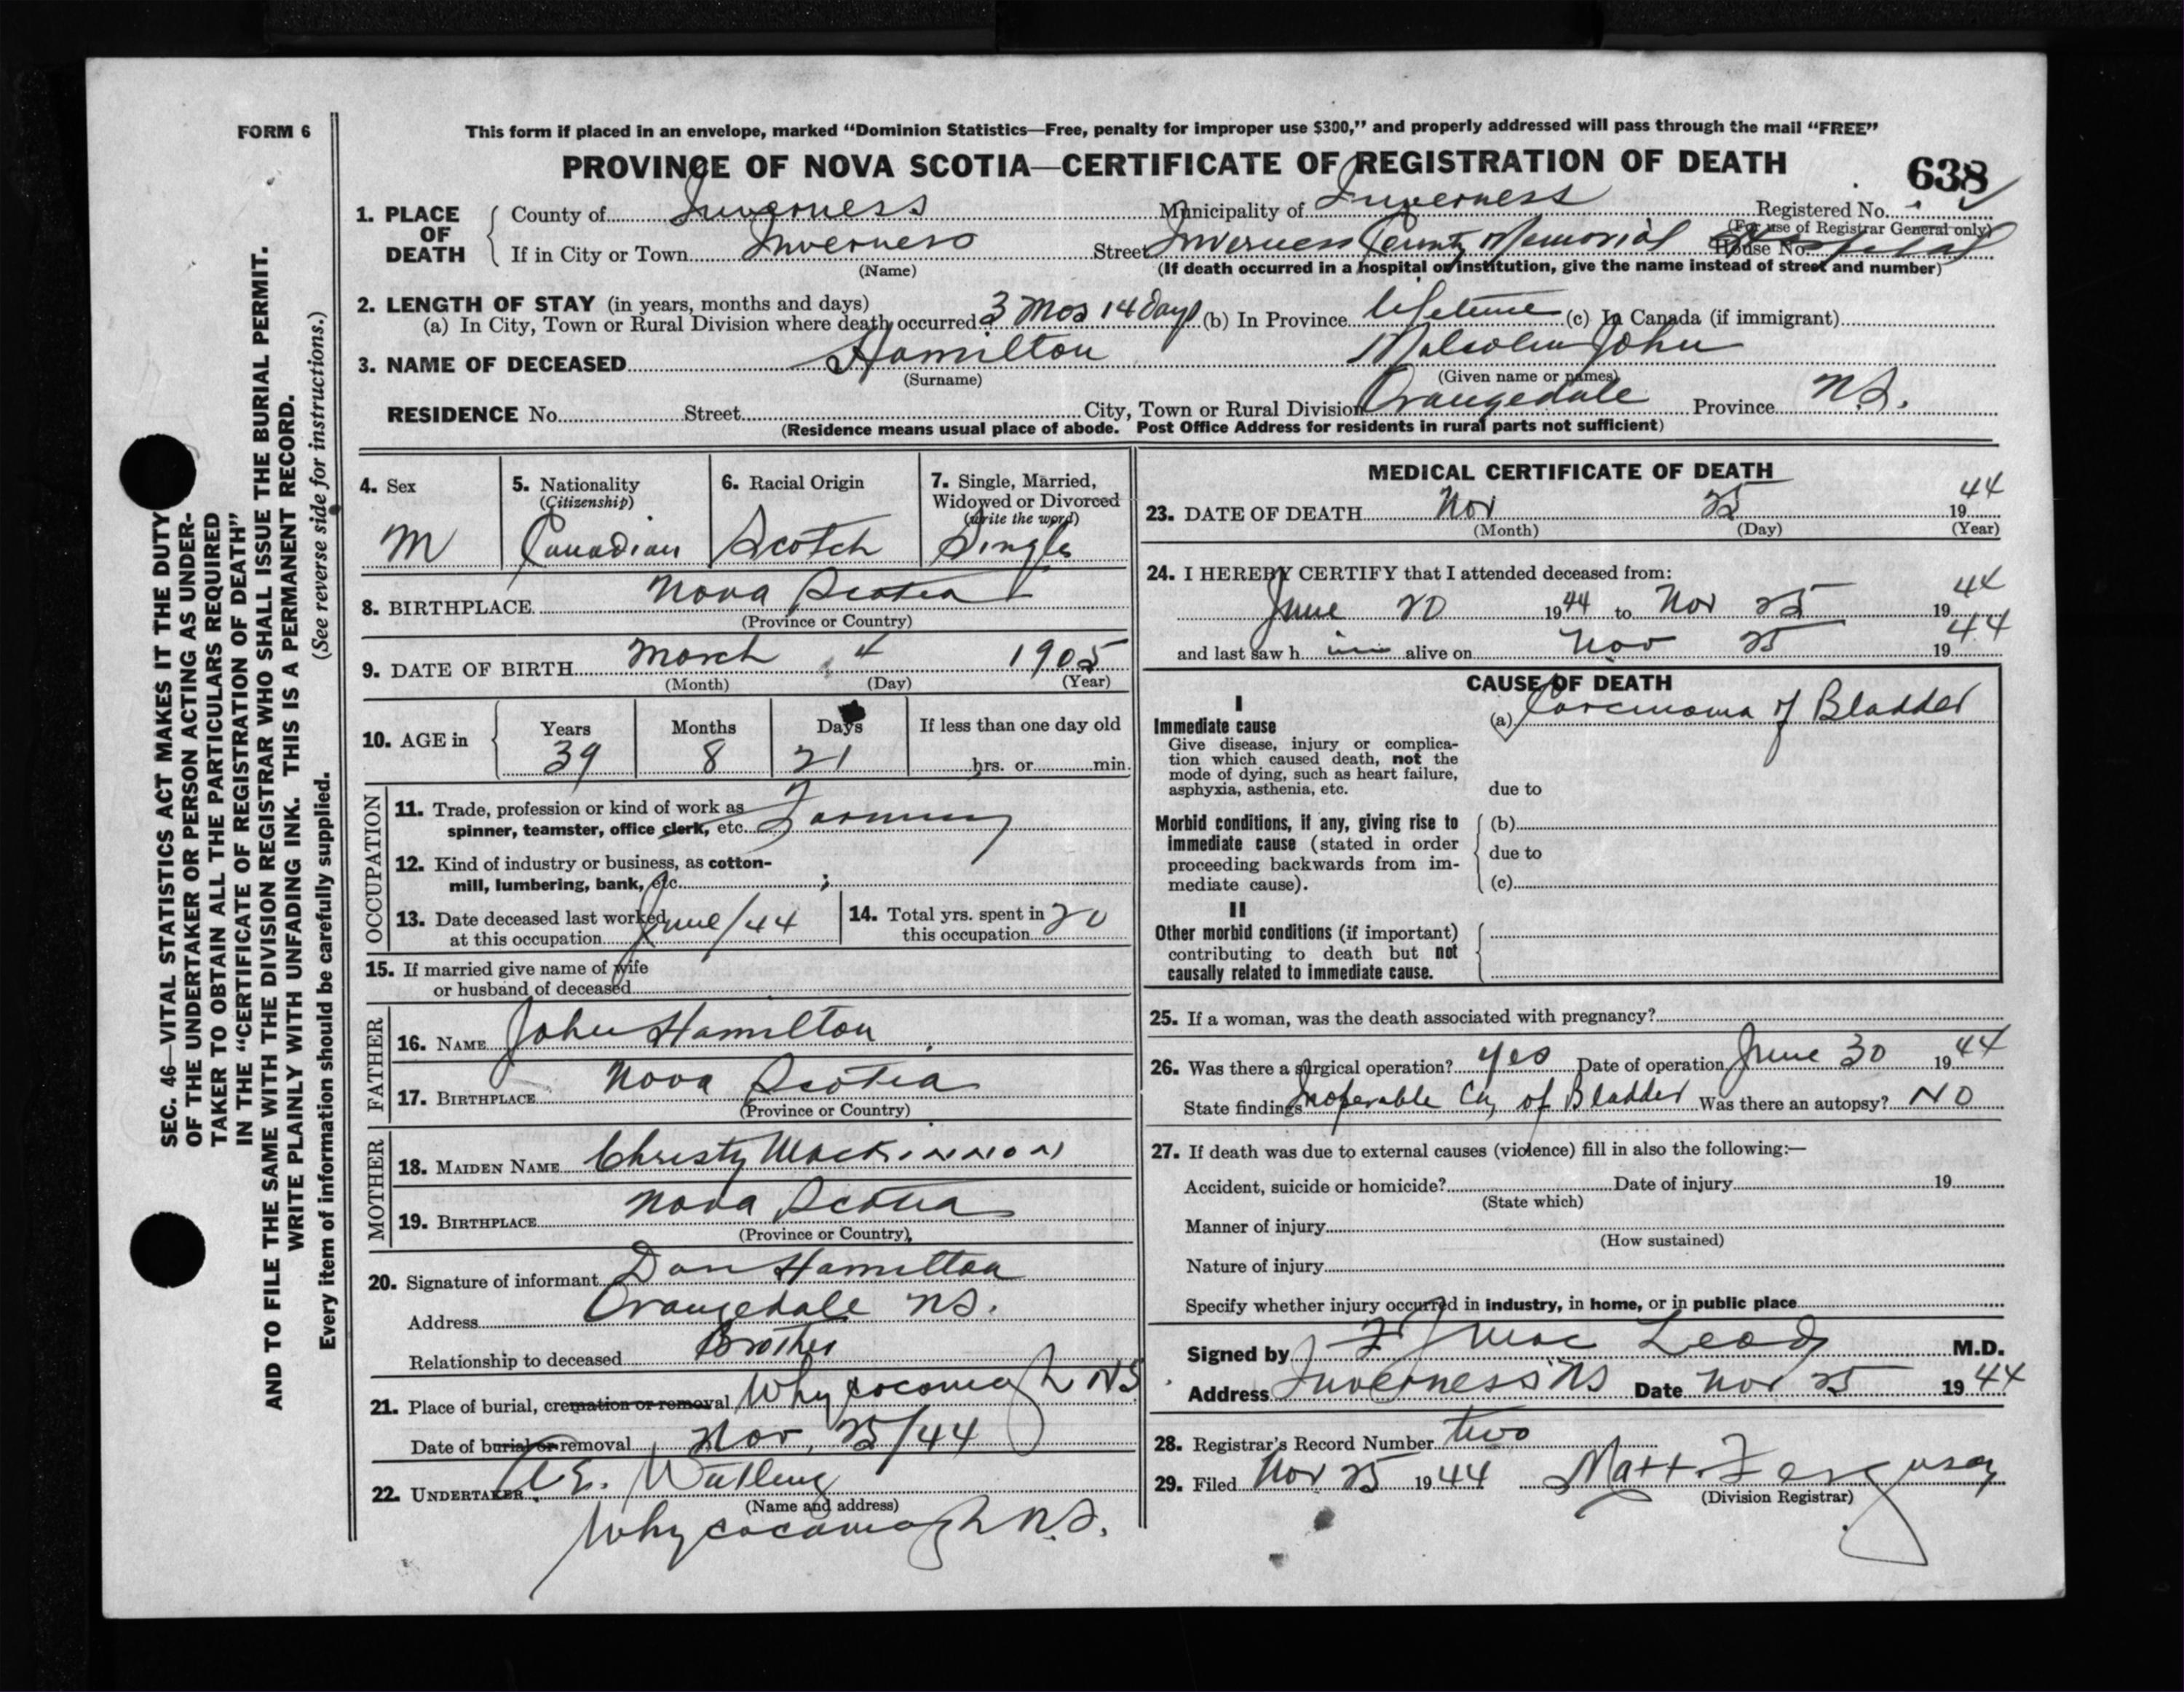 FORM 6
This form if placed in an envelope, marked “Dominion Statistics—Free, penalty for improper use $300,” and properly addressed will pass through the mail “FREE”
PROVINCE OF NOVA SCOTIA—CERTIFICATE OF REGISTRATION OF DEATH
638
1. PLACE OF DEATH
County of Inverness Municipality of Inverness Registered No.
(For use of Registrar General only)
If in City or Town Inverness Street Inverness County Memorial Hospital House No.
(Name) (If death occurred in a hospital or institution, give the name instead of street and number)
2. LENGTH OF STAY (in years, months and days)
(a) In City, Town or Rural Division where death occurred 3 mos 14 days (b) In Province lifetime (c) In Canada (if immigrant)
3. NAME OF DECEASED Hamilton Malcolm John
(Surname) (Given name or names)
RESIDENCE No. Street City, Town or Rural Division Orangedale Province N.S.
(Residence means usual place of abode. Post Office Address for residents in rural parts not sufficient)
4. Sex
M
5. Nationality
(Citizenship)
Canadian
6. Racial Origin
Scotch
7. Single, Married,
Widowed or Divorced
(write the word)
Single
8. BIRTHPLACE Nova Scotia
(Province or Country)
9. DATE OF BIRTH March 4 1905
(Month) (Day) (Year)
10. AGE in
Years Months Days If less than one day old
39 8 21 hrs. or min.
OCCUPATION
11. Trade, profession or kind of work as
spinner, teamster, office clerk, etc. Farming
12. Kind of industry or business, as cotton-
mill, lumbering, bank, etc.
13. Date deceased last worked
at this occupation June/44
14. Total yrs. spent in
this occupation 20
15. If married give name of wife
or husband of deceased
FATHER
16. NAME John Hamilton
17. BIRTHPLACE Nova Scotia
(Province or Country)
MOTHER
18. MAIDEN NAME Christy MacKinnon
19. BIRTHPLACE Nova Scotia
(Province or Country)
20. Signature of informant Dan Hamilton
Address Orangedale N.S.
Relationship to deceased Brother
21. Place of burial, cremation or removal Whycocomagh NS
Date of burial or removal Nov. 25/44
22. UNDERTAKER A E. Watling
(Name and address)
Whycocomagh N.S.
MEDICAL CERTIFICATE OF DEATH
23. DATE OF DEATH Nov 25 1944
(Month) (Day) (Year)
24. I HEREBY CERTIFY that I attended deceased from:
June 20 1944 to Nov 25 1944
and last saw h im alive on Nov 25 1944
CAUSE OF DEATH
I
Immediate cause
Give disease, injury or complica-
tion which caused death, not the
mode of dying, such as heart failure,
asphyxia, asthenia, etc.
(a) Carcinoma of Bladder
due to
Morbid conditions, if any, giving rise to
immediate cause (stated in order
proceeding backwards from im-
mediate cause).
(b)
due to
(c)
II
Other morbid conditions (if important)
contributing to death but not
causally related to immediate cause.
25. If a woman, was the death associated with pregnancy?
26. Was there a surgical operation? yes Date of operation June 30 1944
State findings Inoperable Ca, of Bladder Was there an autopsy? NO
27. If death was due to external causes (violence) fill in also the following:—
Accident, suicide or homicide? Date of injury 19
(State which)
Manner of injury
(How sustained)
Nature of injury
Specify whether injury occurred in industry, in home, or in public place
Signed by F J Mac Leod M.D.
Address Inverness NS Date Nov 25 1944
28. Registrar's Record Number two
29. Filed Nov 25 1944 Matt. Ferguson
(Division Registrar)
SEC. 46—VITAL STATISTICS ACT MAKES IT THE DUTY
OF THE UNDERTAKER OR PERSON ACTING AS UNDER-
TAKER TO OBTAIN ALL THE PARTICULARS REQUIRED
IN THE “CERTIFICATE OF REGISTRATION OF DEATH”
AND TO FILE THE SAME WITH THE DIVISION REGISTRAR WHO SHALL ISSUE THE BURIAL PERMIT.
WRITE PLAINLY WITH UNFADING INK. THIS IS A PERMANENT RECORD.
Every item of information should be carefully supplied. (See reverse side for instructions.)